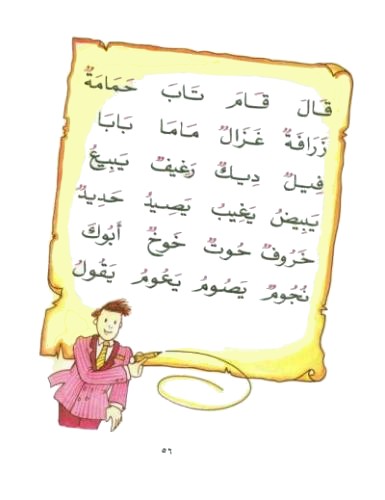 قَالَ قَامَ تَابَ حَمَامَةٌ
زَرَافَةٌ غَزَالٌ مَامَا بَابَا
فِيلٌ دِيكٌ رَغِيفٌ يَبِيعُ
يَبِيضُ يَغِيبُ يَصِيدُ حَدِيدٌ
خَرُوفٌ حُوتٌ خَوْخٌ أَبُوكَ
نُجُومٌ يَصُومُ يَعُومُ يَقُولُ
٥٦